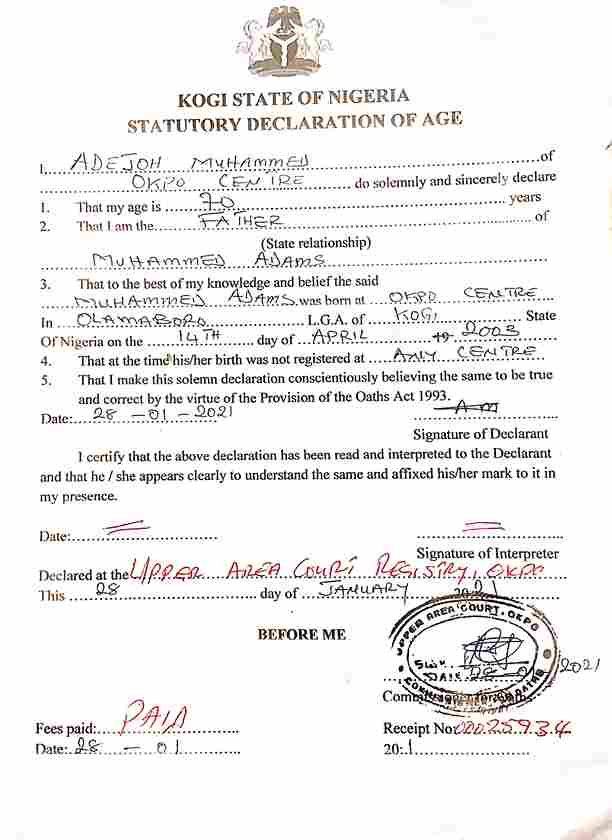 KOGI STATE OF NIGERIA
STATUTORY DECLARATION OF AGE
I, ADEJOH MUHAMMED of
OKPO CENTRE do solemnly and sincerely declare
1. That my age is 70 years
2. That I am the FATHER of
(State relationship)
MUHAMMED ADAMS
3. That to the best of my knowledge and belief the said
MUHAMMED ADAMS was born at OKPO CENTRE
In OLAMABORO L.G.A. of KOGI State
Of Nigeria on the 14TH day of APRIL 19 2003
4. That at the time his/her birth was not registered at ANY CENTRE
5. That I make this solemn declaration conscientiously believing the same to be true
and correct by the virtue of the Provision of the Oaths Act 1993.
Date: 28-01-2021 Am
Signature of Declarant
I certify that the above declaration has been read and interpreted to the Declarant
and that he / she appears clearly to understand the same and affixed his/her mark to it in
my presence.
Date:
Signature of Interpreter
Declared at the UPPER AREA COURT REGISTRY, OKPO
This 28 day of JANUARY 2021
BEFORE ME
UPPER AREA COURT, OKPO
SIGN
DATE 2021
COMMISSIONER FOR OATHS
Commissioner for Oaths
Fees paid: PAID Receipt No: 00025934
Date: 28-01 20:1